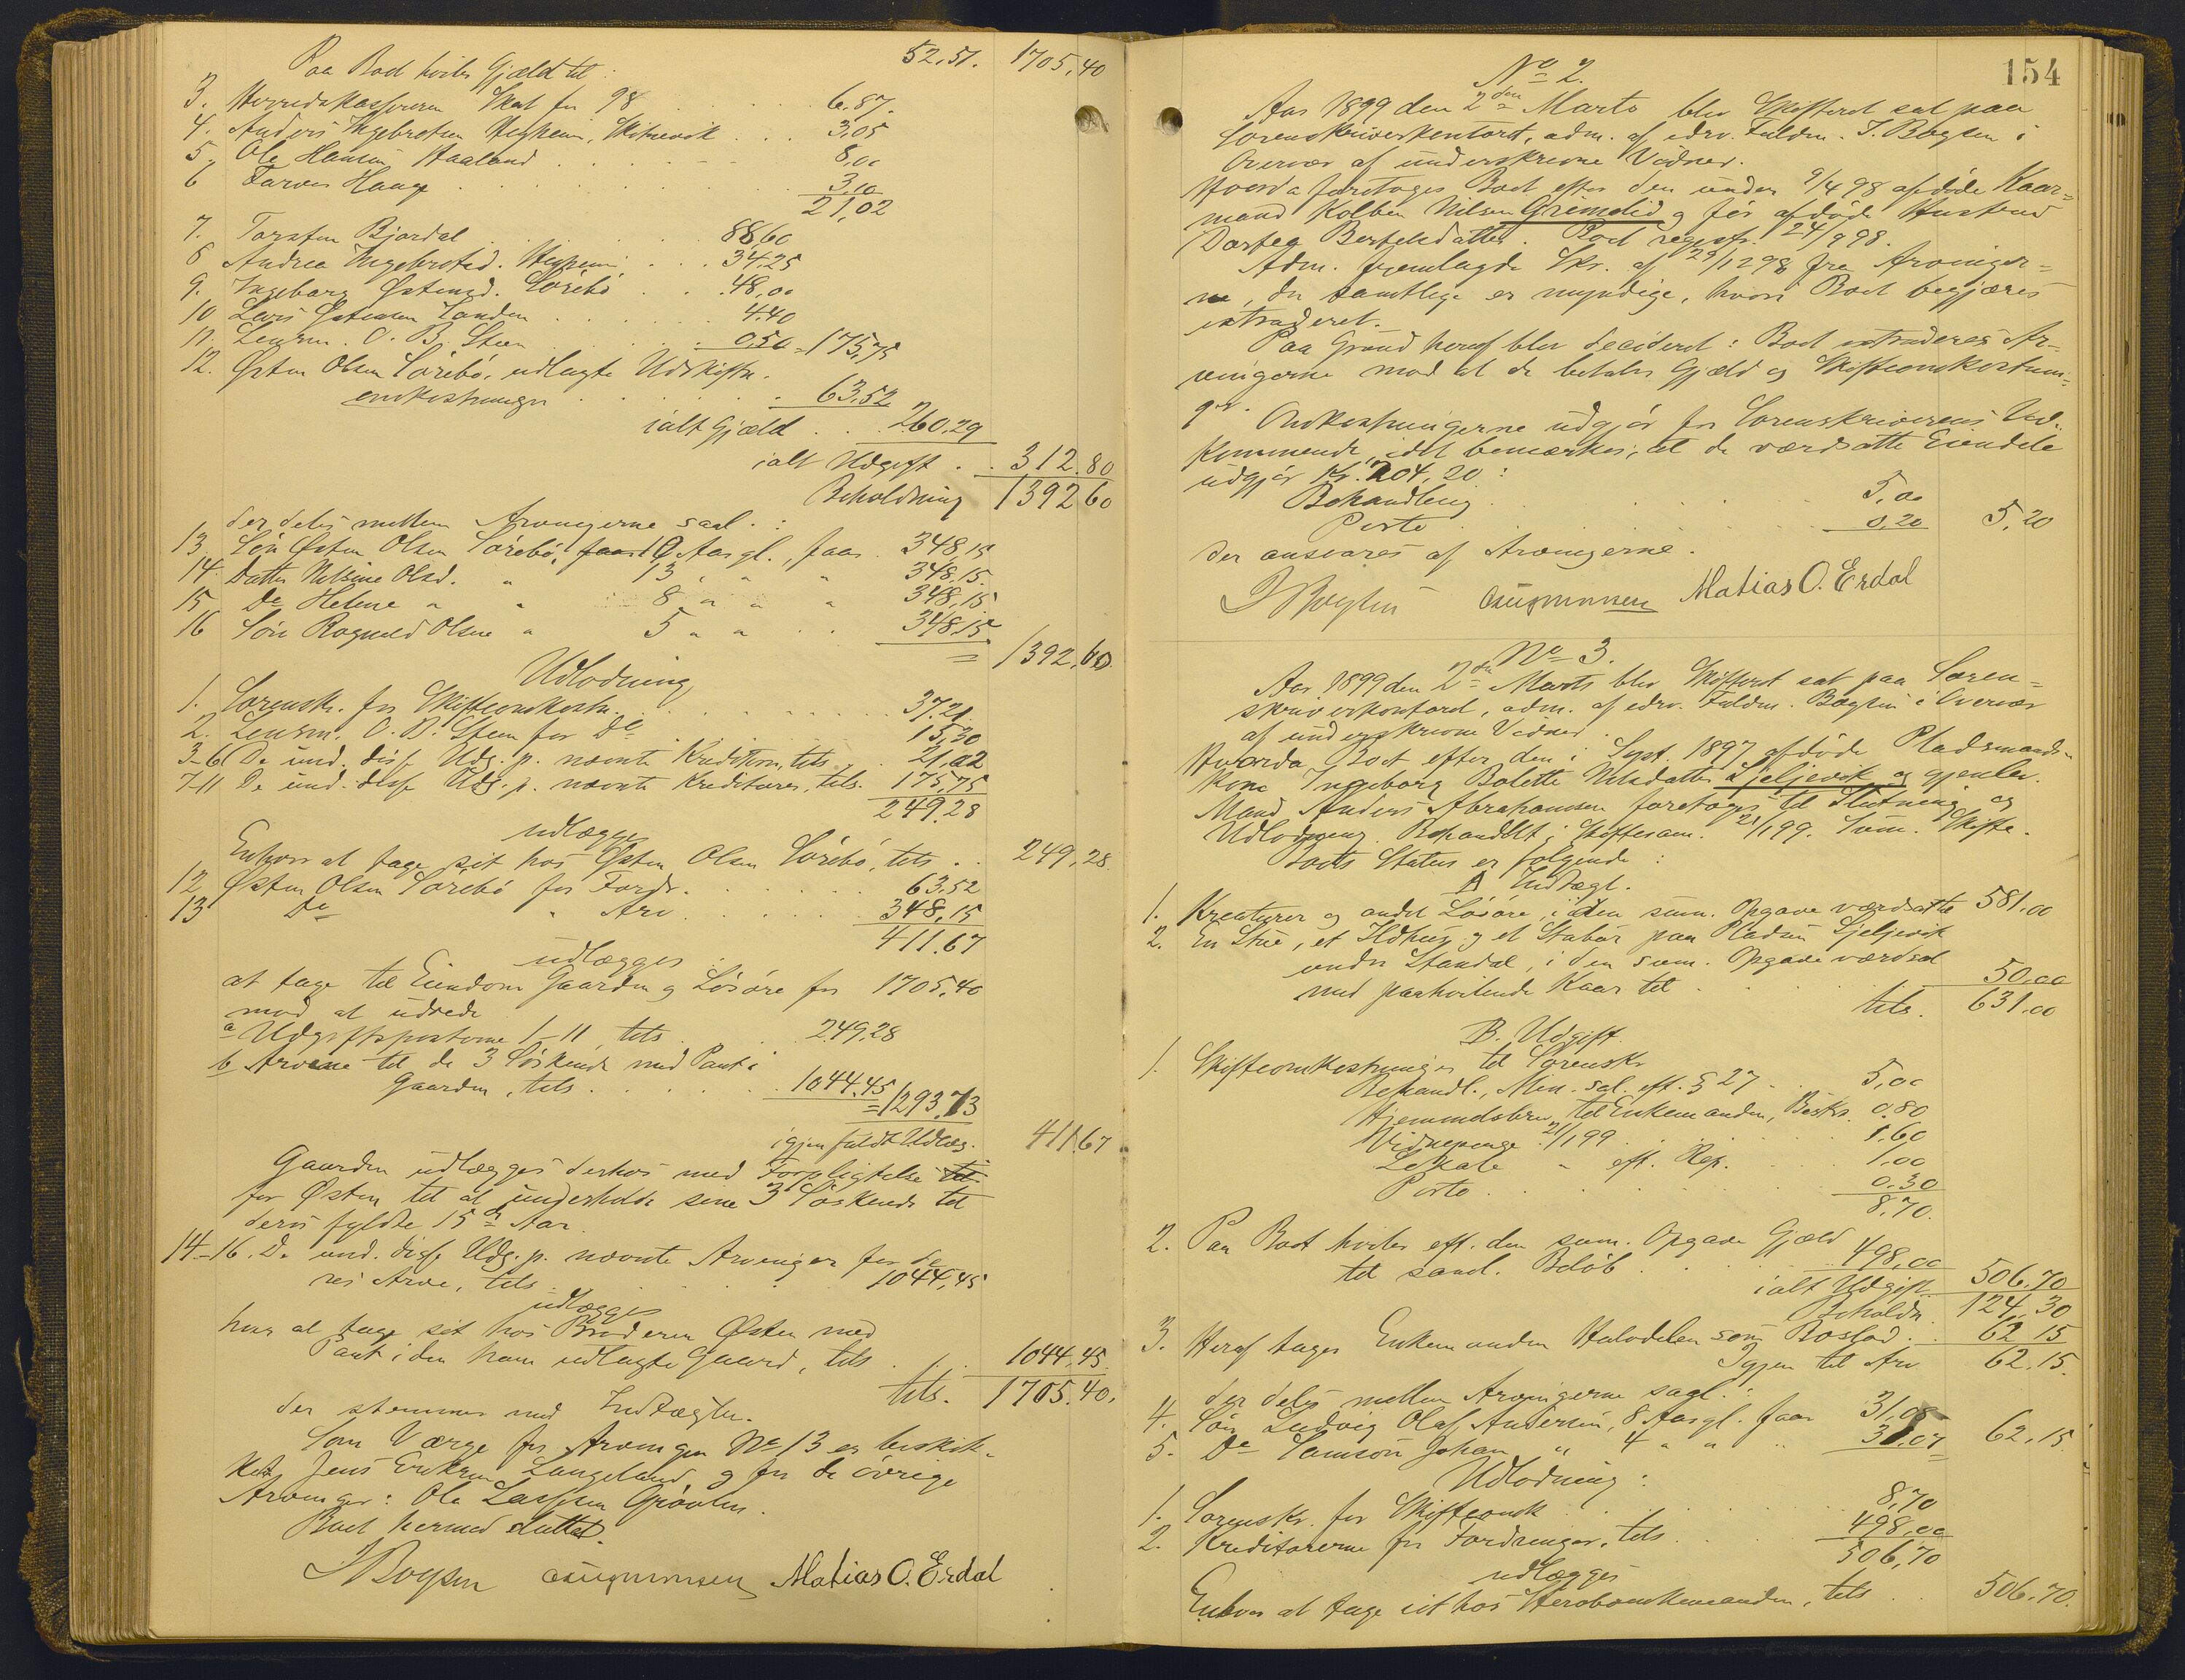 Paa Boet hviler Gjæld til: 52,51. 1705,40
3. Herredskassereren Skat for 98 6.87.
4. Anders Ingebretsen 3,05
5, Ole Hansen Haaland 8,00
6 Farver Hauge 3,10
21,02
7. Torsten Bjordal 88,60
8 Andrea Ingebretsd. 34,25
9. Ingeborg Østensd. Sørebø 48,00
10 Lars Østensen Sanden 4.40
11. Lensm. O. B. Steen 0.50 = 175,75
12. Østen Olsen Sørebø, udlagte Udskiftn.
omkostninger 63.52
ialt Gjæld 260.29
ialt Udgift 312.80
Beholdning 1392 60
der deles mellem Arvingerne saal.:
13 Søn Østen Olsen Sørebø, Aar gl., faar 348,15
14. Datter Nilsine Olsd. " 13 " " " 348,15.
15 Do Helene " " 8 " " " 348,15
16 Søn Ragnvald Olsen " 5 " " 348,15
= 1392,60.
Udlodning
1. Sorenskr. for Skifteomkostn. 37.21
2. Lensm. O. B. Steen for Do 15,30
3-6 De und. disse Udg. p. nævnte Kreditorer, tils. 21,02
7-11 De und. disse Udg. p. nævnte Kreditorer, tils. 175,75
249.28
udlægges
Enhver at tage sit hos Østen Olsen Sørebø, tils. 249,28.
12 Østen Olsen Sørebø for Fordr. 63.52
13 Do " Arv 348,15
411.67
udlægges:
at tage til Eiendom Gaarden og Løsøre for 1705,40
mod at udrede
a Udgiftsposterne 1-11, tils 249,28
b Arvene til de 3 Søskende med Pant i
Gaarden, tils. 1044.45
= 1293.73
igjen fuldt Udlæg. 411.67
Gaarden udlægges derhos med Forpligtelse til
for Østen til at underholde sine 3 Søskende til
deres fyldte 15de Aar.
14-16. De und. disse Udg. p. nævnte Arvinger for de
res Arve, tils 1044,45
udlægges
hver at tage sit hos Broderen Østen med
Pant i den ham udlagte Gaard, tils 1044.45.
tils. 1705.40.
der stemmer med Indtægten.
Som Værge for Arvingen No 13 er beskik-
ket Jens Eriksen Langeland og for de øvrige
Arvinger: Ole Lassesen
Boet hermed sluttet.
J Boysen Matias O. Erdal
154
No 2.
Aar 1899 den 2den Marts blev Skifteret sat paa
Sorenskriverkontoret, adm. af edsv. Fuldm. J. Boysen i
Overvær af underskrevne Vidner.
Hvorda foretoges Boet efter den under 9/4 98 afdøde Kaar-
mand Kolben Nilsen Grimelid og før afdøde Hustru
Dortea Bertelsdatter. Boet registr. 24/9 98.
Adm. fremlagde Skr. af 29/12 98 fra Arvinger-
ne, der samtlige er myndige, hvori Boet begjæres
extraderet.
Paa Grund heraf blev decideret: Boet extraderes Ar-
vingerne mod at de betaler Gjæld og Skifteomkostnin-
ger.
Omkostningerne udgjør for Sorenskriverens Ved-
kommende, idet bemærkes, at de værdsatte Eiendele
udgjør Kr. 204,20:
Behandling 5,00
Porto 0,20 5,20
der ansvares af Arvingerne.
J Boysen Matias O. Erdal
No 3.
Aar 1899 den 2den Marts blev Skifteret sat paa Soren-
skriverkontoret, adm. af edsv. Fuldm. Boysen i Overvær
af underskrevne Vidner.
Hvorda Boet efter den i Sept. 1897 afdøde Pladsmands-
kone Ingeborg Bolette Nilsdatter Ljeljevik og gjenlev.
Mand Anders Abrahamsen foretoges til Slutning og
Udlodning. Behandlet i Skiftesam. 21/1 99. Sum. Skifte.
Boets Status er følgende:
A Indtægt.
1. Kreaturer og andet Løsøre, i den sum. Opgave værdsatte 581.00
2. En Stue, et Ildhus og et Stabur paa Pladsen Ljeljevik
under Standal, i den sum. Opgave værdsat
med paahvilende Kaar til 50.00
tils. 631.00
B. Udgift.
1. Skifteomkostninger til Sorenskr.
Behandl., Min. sal. eft. § 27 5,00
Hjemmelsbrev til Enkemanden, 0,80
Vidnepenge 21/1 99 1.60
Lokale " eft. Rep. 1,00
Porto 0.30
8,70.
2. Paa Boet hviler eft. den sum. Opgave Gjæld
til saml. Beløb 498,00
ialt Udgift 506,70
Beholdn. 124,30
3. Heraf tager Enkemanden Halvdelen som Boslod 62 15
Igjen til Arv 62.15.
der deles mellem Arvingerne saal.:
4. Søn Ludvig Olaf Andersen, 8 Aar gl. faar 31,08
5. Do Samson Johan " 4 " " " 31.07 62,15.
Udlodning:
1. Sorenskr. for Skifteomk 8,70
2. Kreditorerne for Fordringer, tils 498,00
506,70
udlægges
Enhver at tage sit hos Sterbboenkemanden, tils 506,70.